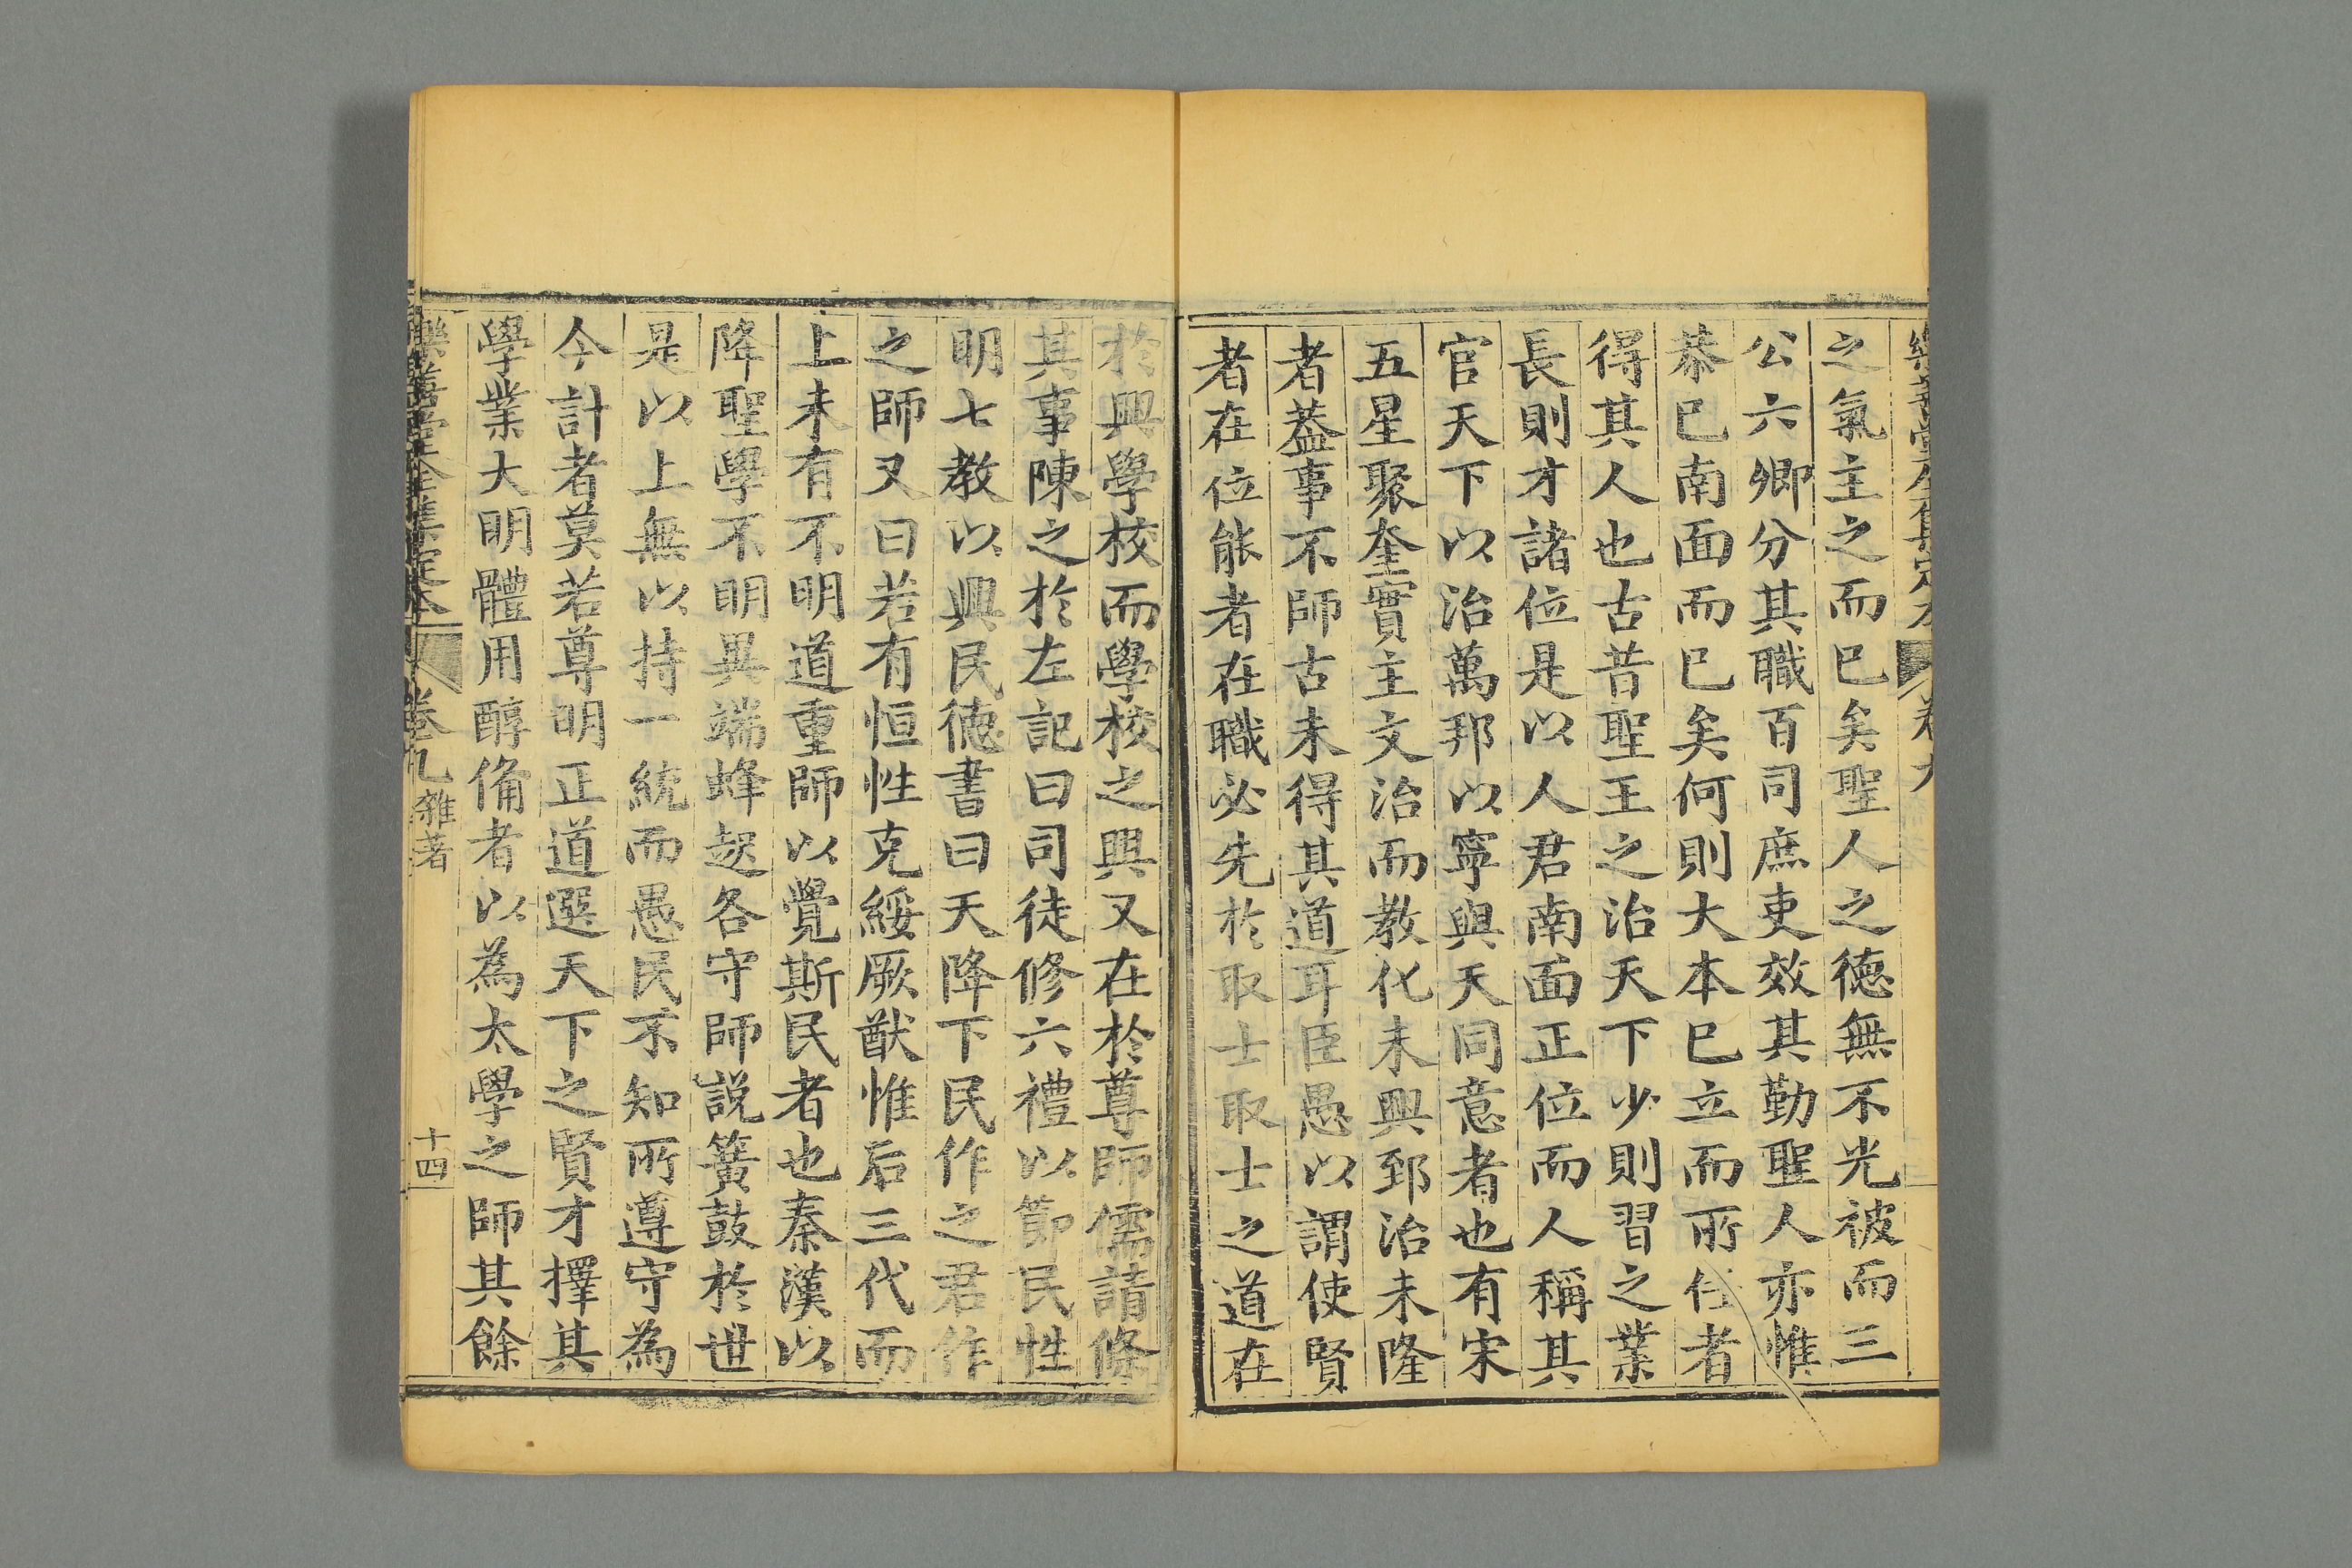 之氣主之而已矣聖人之德無不光被而三
公六卿分其職百司庶吏效其勤聖人亦惟
恭已南面而已矣何則大本已立而所任者
得其人也古昔聖王之治天下少則習之業
長則才諸位是以人君南面正位而人稱其
官天下以治萬邦以寧與天同意者也有宋
五星聚奎實主文治而教化未興郅治未隆
者葢事不師古未得其道耳臣愚以謂使賢
者在位能者在職必先於取士取士之道在
於興學校而學校之興又在於尊師儒請條
其事陳之於左記曰司徒修六禮以節民性
明七教以興民德書曰天降下民作之君作
之師又曰若有恒性克綏厥猷惟后三代而
上未有不明道重師以覺斯民者也秦漢以
降聖學不明異端蜂起各守師説簧鼓於世
是以上無以持一統而愚民不知所遵守為
今計者莫若尊明正道選天下之賢才擇其
學業大明體用醇備者以為太學之師其餘
樂善堂全集定本 卷九 雜著 十四